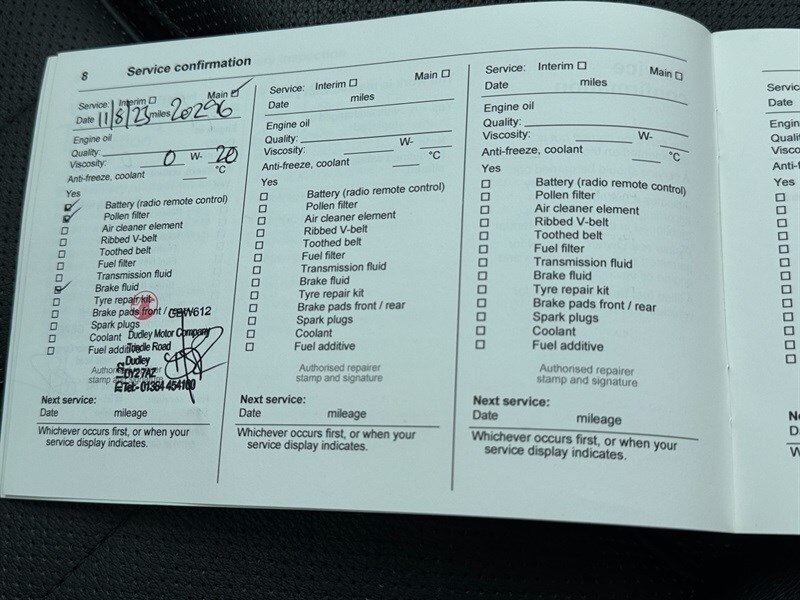 8 Service confirmation
Service: Interim ☐ Main ☑
Date 11/8/23 miles 20296
Engine oil
Quality:
Viscosity: 0 W- 20
Anti-freeze, coolant °C
Yes
☑ Battery (radio remote control)
☑ Pollen filter
☐ Air cleaner element
☐ Ribbed V-belt
☐ Toothed belt
☐ Fuel filter
☐ Transmission fluid
☑ Brake fluid
☐ Tyre repair kit
☐ Brake pads front /
☐ Spark plugs
☐ Coolant
☐ Fuel additive
GBW612
Dudley Motor Company
Trindle Road
Dudley
DY2 7AZ
Tel:- 01384
stamp and signature
Next service:
Date mileage
Whichever occurs first, or when your
service display indicates.
Service: Interim ☐ Main ☐
Date miles
Engine oil
Quality:
Viscosity: W-
Anti-freeze, coolant °C
Yes
☐ Battery (radio remote control)
☐ Pollen filter
☐ Air cleaner element
☐ Ribbed V-belt
☐ Toothed belt
☐ Fuel filter
☐ Transmission fluid
☐ Brake fluid
☐ Tyre repair kit
☐ Brake pads front / rear
☐ Spark plugs
☐ Coolant
☐ Fuel additive
Authorised repairer
stamp and signature
Next service:
Date mileage
Whichever occurs first, or when your
service display indicates.
Service: Interim ☐ Main ☐
Date miles
Engine oil
Quality:
Viscosity: W-
Anti-freeze, coolant °C
Yes
☐ Battery (radio remote control)
☐ Pollen filter
☐ Air cleaner element
☐ Ribbed V-belt
☐ Toothed belt
☐ Fuel filter
☐ Transmission fluid
☐ Brake fluid
☐ Tyre repair kit
☐ Brake pads front / rear
☐ Spark plugs
☐ Coolant
☐ Fuel additive
Authorised repairer
stamp and signature
Next service:
Date mileage
Whichever occurs first, or when your
service display indicates.
Date
Yes